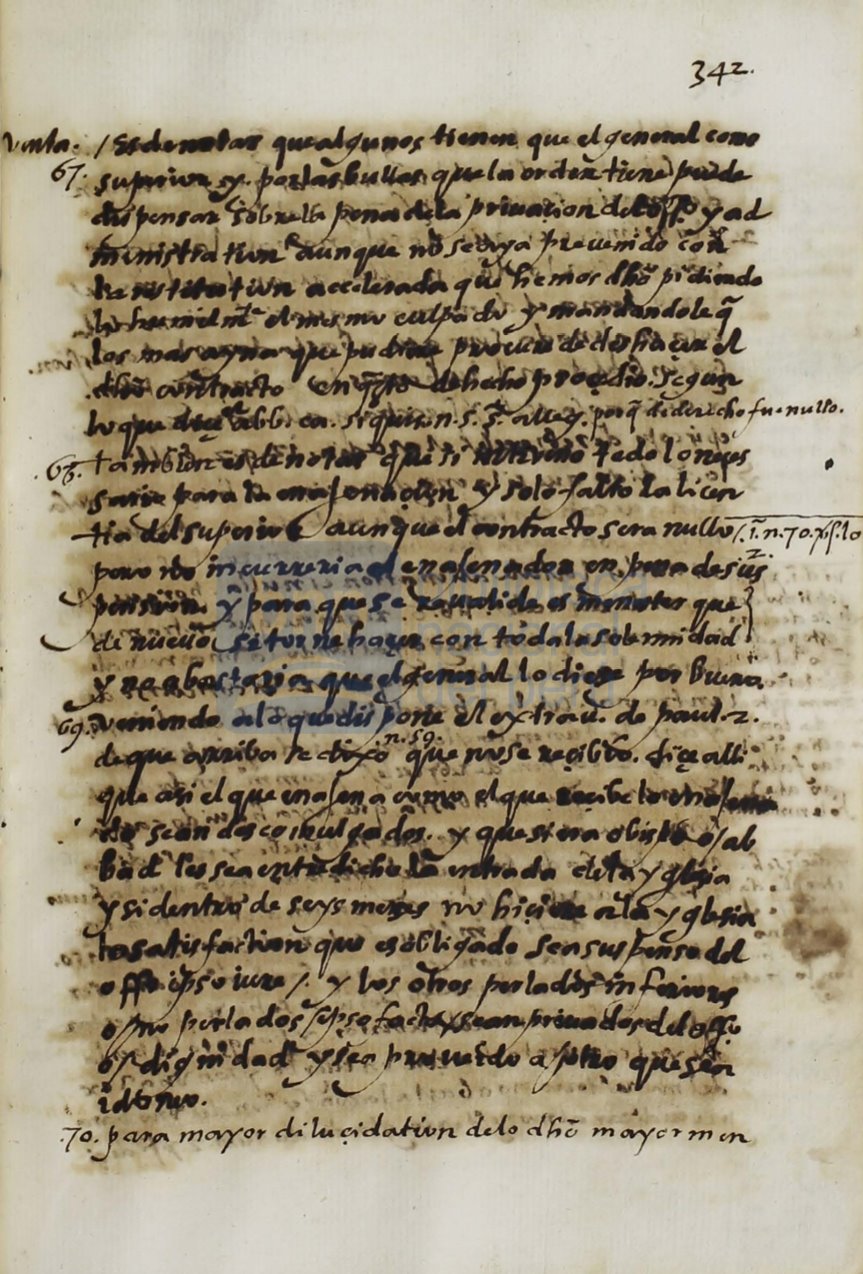 342.
Venta. / Es de notar que algunos tienen que el general como
67. superior y por las bullas que la orden tiene puede
dispensar sobre la pena de la priuacion del offo y ad
ministration aunque no se aya preuenido con
la restitution accelerada que hemos dho pidiendo
el mismo culpado y mandandole q̃
los mas ayna que pudiere procure de deshacer el
dho contracto de hecho procedio. Segun
lo que porq̃ de derecho fue nullo.
68. tambien es de notar que si todo lo neçes
sario para la enajenaçion y solo falto la licen
tia del superior aunque el contracto sera nullo /. n. 70.
pero no incurreria el enajenador en pena de sus
pension y para que se reualide es menester que
de nueuo se torne hazer con toda la solemnidad
y no abastaria que el general lo diese por bueno.
69. Veniendo a lo que dispone el extrau. de paul. 2.
de que arriba se dixo n. 59. que no se reçibio. diçe alli
que asi el que enajena como el que reçibe lo enajena
do sean descomulgados. y que si era obispo o ab
bad les sea entredicho la entrada de la yglesia
y si dentro de seys meses no hiçiere a la yglesia
la satisfaction que es obligado sea suspenso del
offo ipso iure /. y los otros perlados inferiores
o no perlados ipso facto sean priuados del offo
o dignidad y sea proueido a otro que sea
idoneo.
70. para mayor dilucidation de lo dho mayormen